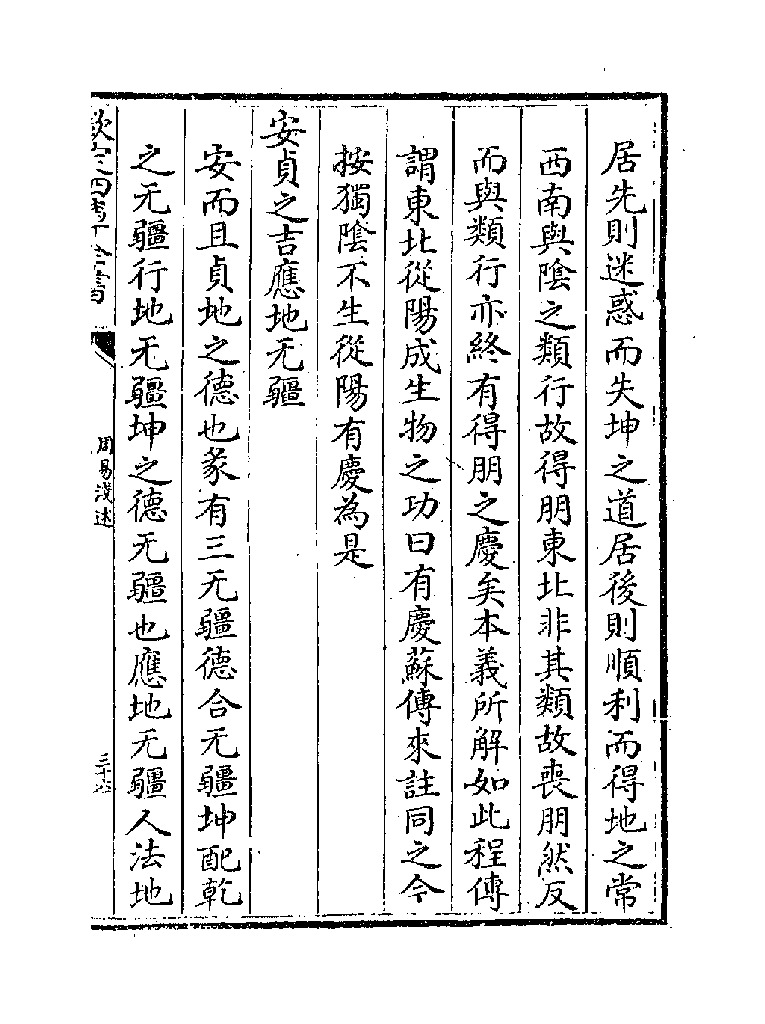 居先則迷惑而失坤之道居後則順利而得地之常
西南與陰之類行故得朋東北非其類故喪朋然反
而與類行亦終有得朋之慶矣本義所解如此程傳
謂東北從陽成生物之功曰有慶蘇傳來註同之今
按獨陰不生從陽有慶為是
安貞之吉應地无疆
安而且貞地之德也彖有三无疆德合无疆坤配乾
之无疆行地无疆坤之德无疆也應地无疆人法地
欽定四庫全書
周易淺述
三十六